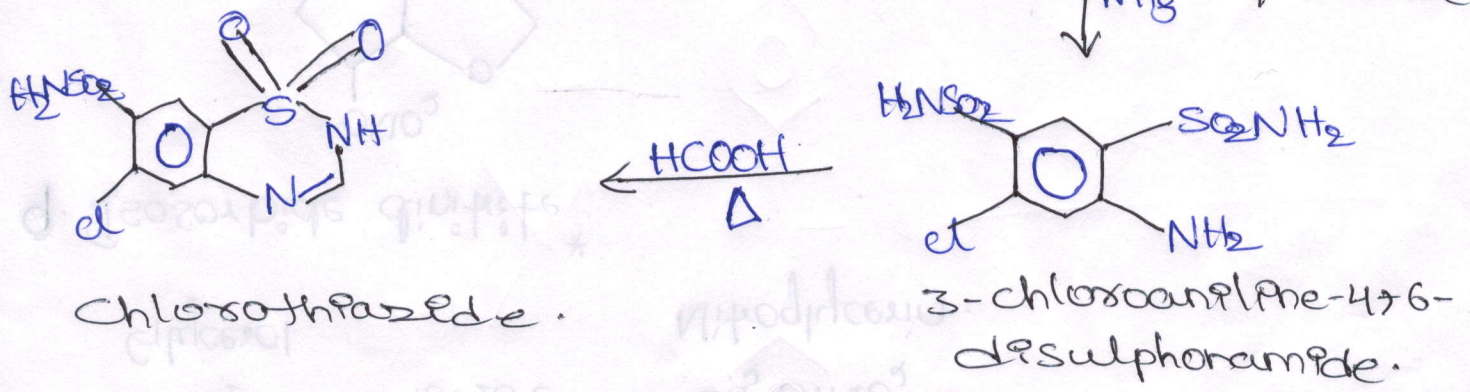 O O
H2NSO2 S
NH
N
Cl
HCOOH
Δ
H2NSO2 SO2NH2
Cl NH2
Chlorothiazide.
3-chloroaniline-4,6-
disulphonamide.